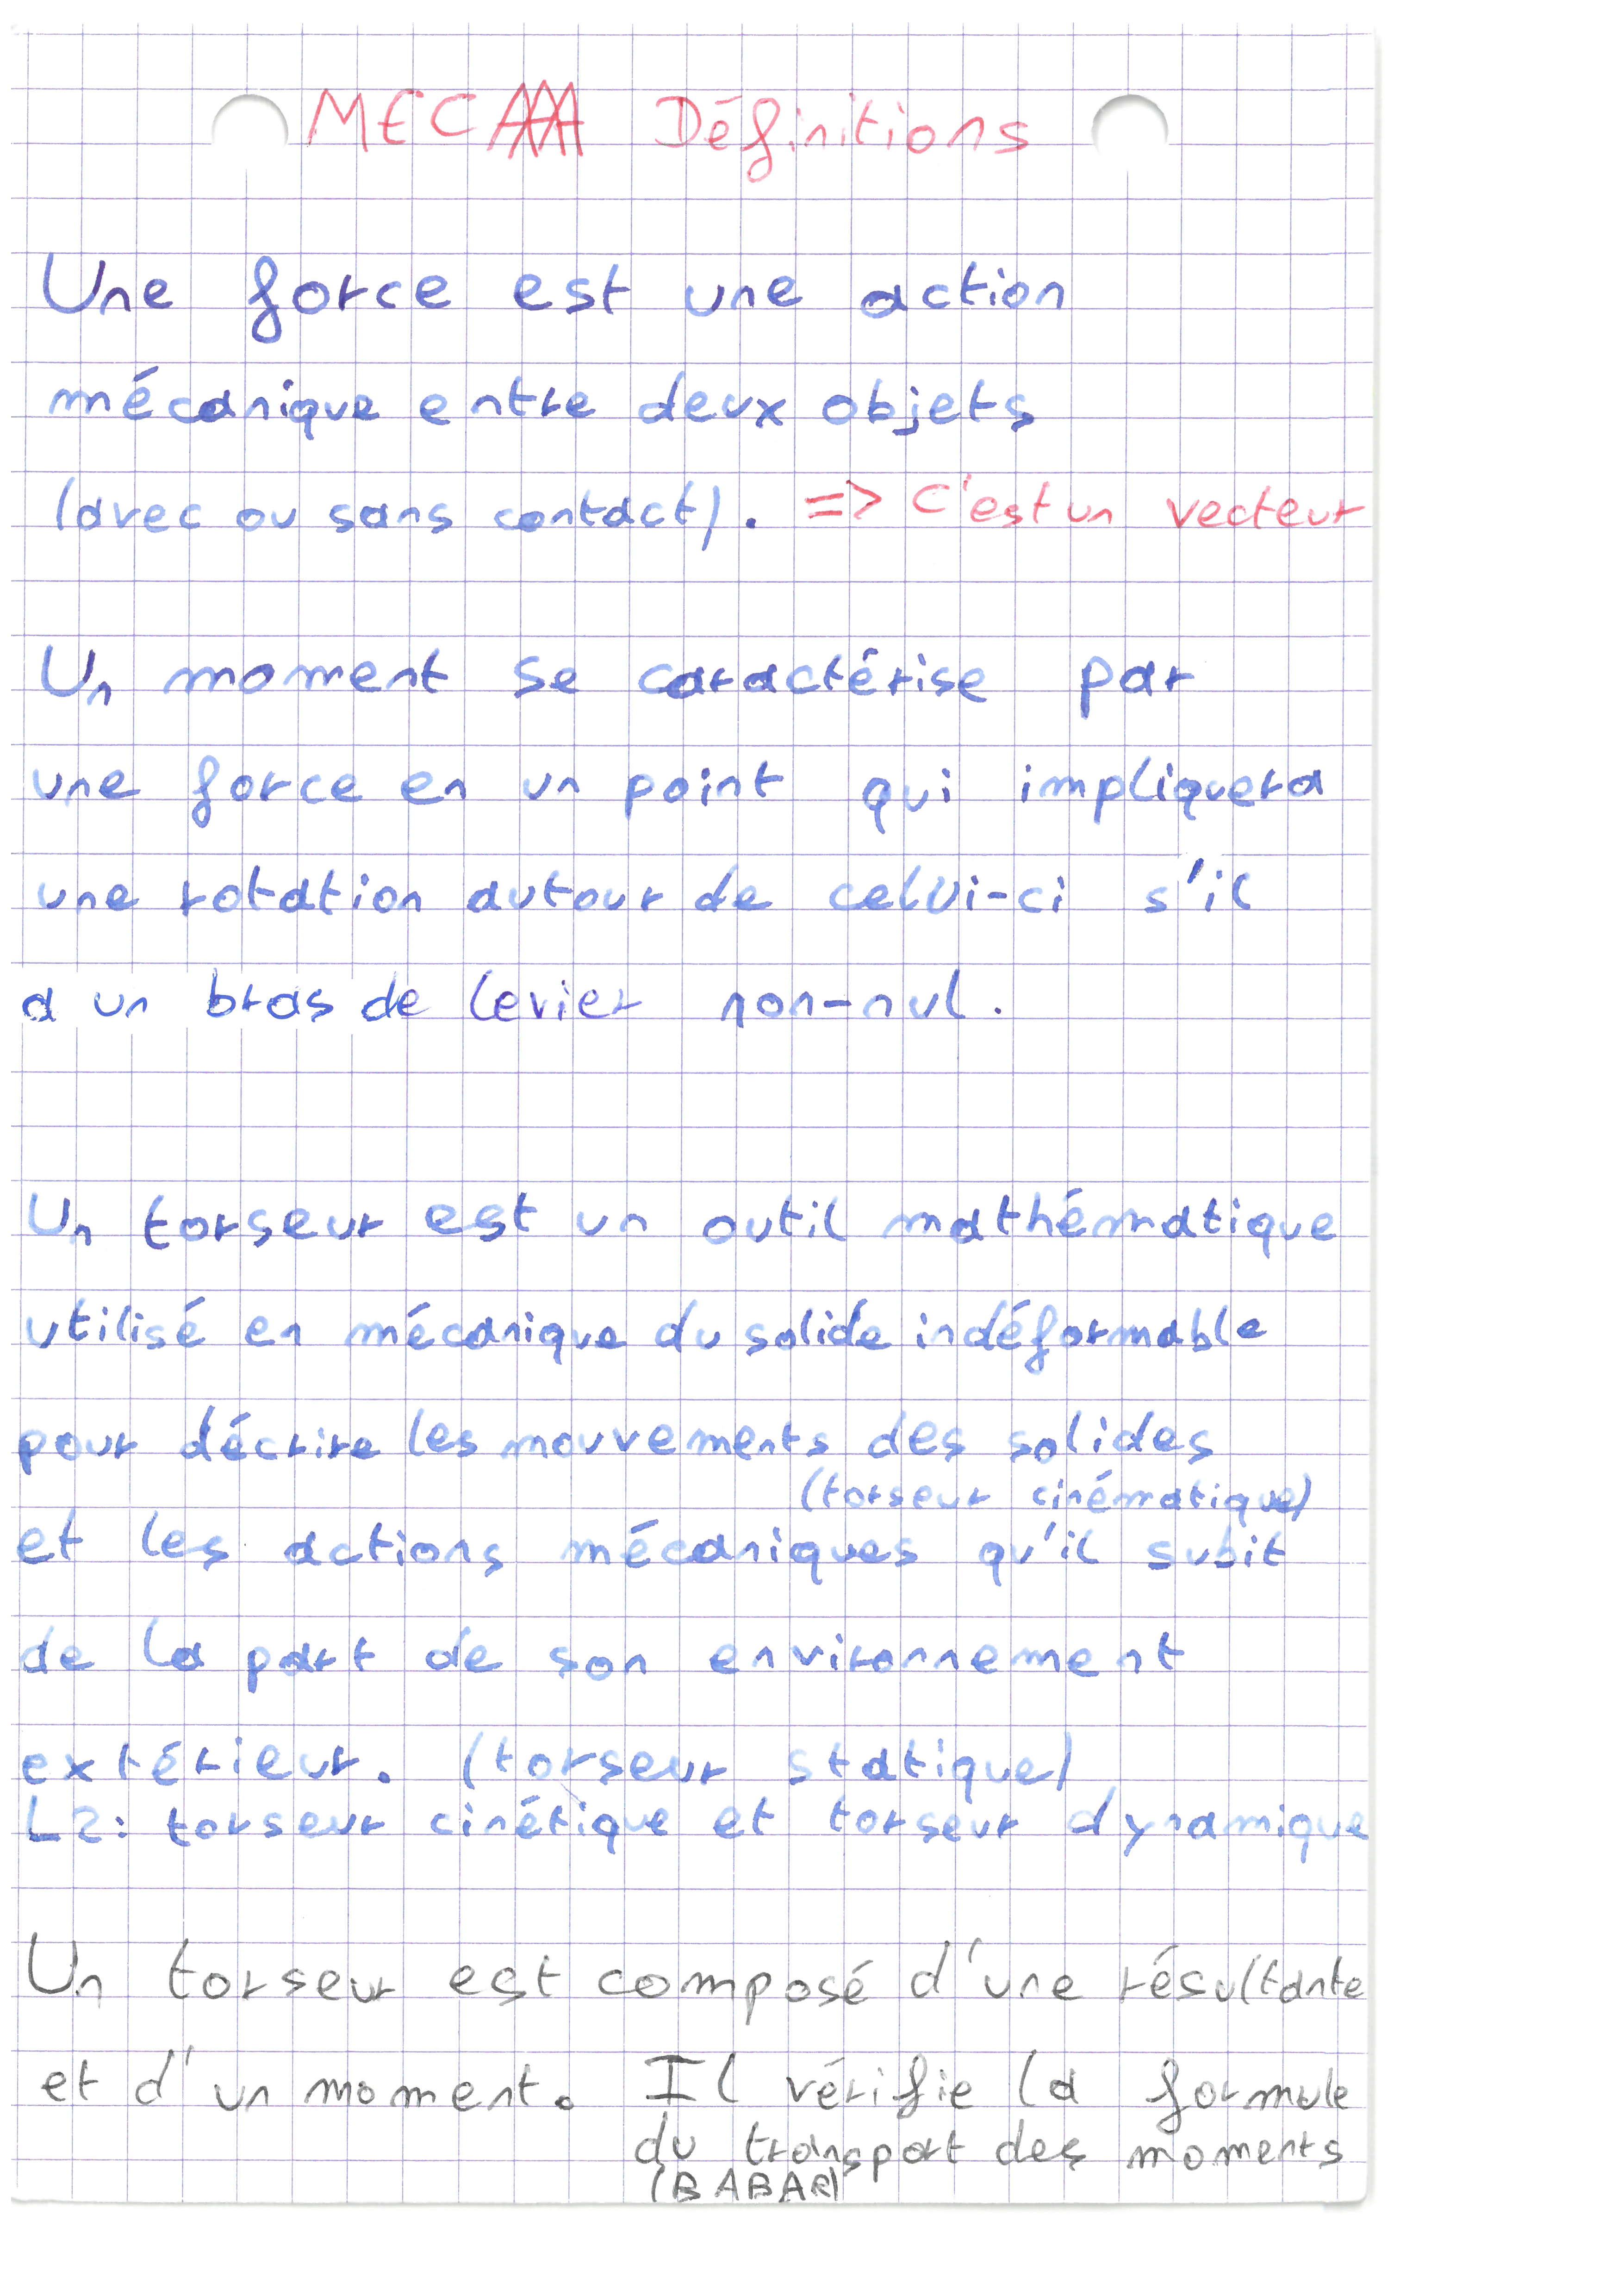 MECAAA Définitions
Une force est une action
mécanique entre deux objets
(avec ou sans contact). => C'est un vecteur
Un moment se caractérise par
une force en un point qui impliquera
une rotation autour de celui-ci s'il
a un bras de levier non-nul.
Un torseur est un outil mathématique
utilisé en mécanique du solide indéformable
pour décrire les mouvements des solides
(torseur cinématique)
et les actions mécaniques qu'il subit
de la part de son environnement
extérieur. (torseur statique)
L2: torseur cinétique et torseur dynamique
Un torseur est composé d'une résultante
et d'un moment. Il vérifie la formule
du transport des moments
(BABAR)